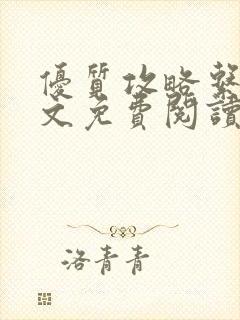 優質攻略系
文免費閱讀
洛青青